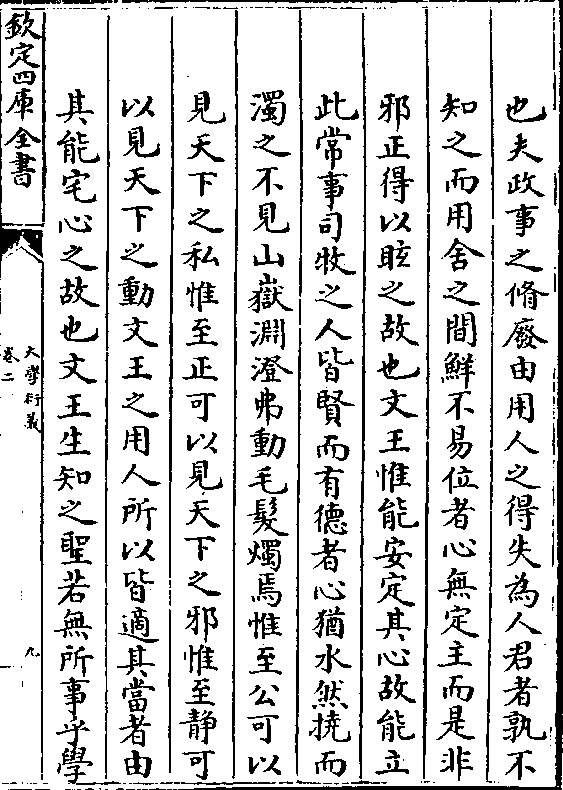 也夫政事之脩廢由用人之得失為人君者孰不
知之而用舍之間鮮不易位者心無定主而是非
邪正得以眩之故也文王惟能安定其心故能立
此常事司牧之人皆賢而有德者心猶水然撓而
濁之不見山嶽淵澄弗動毛髮燭焉惟至公可以
見天下之私惟至正可以見天下之邪惟至静可
以見天下之動文王之用人所以皆適其當者由
其能宅心之故也文王生知之聖若無所事乎學
欽定四庫全書
大學衍義
卷二
九